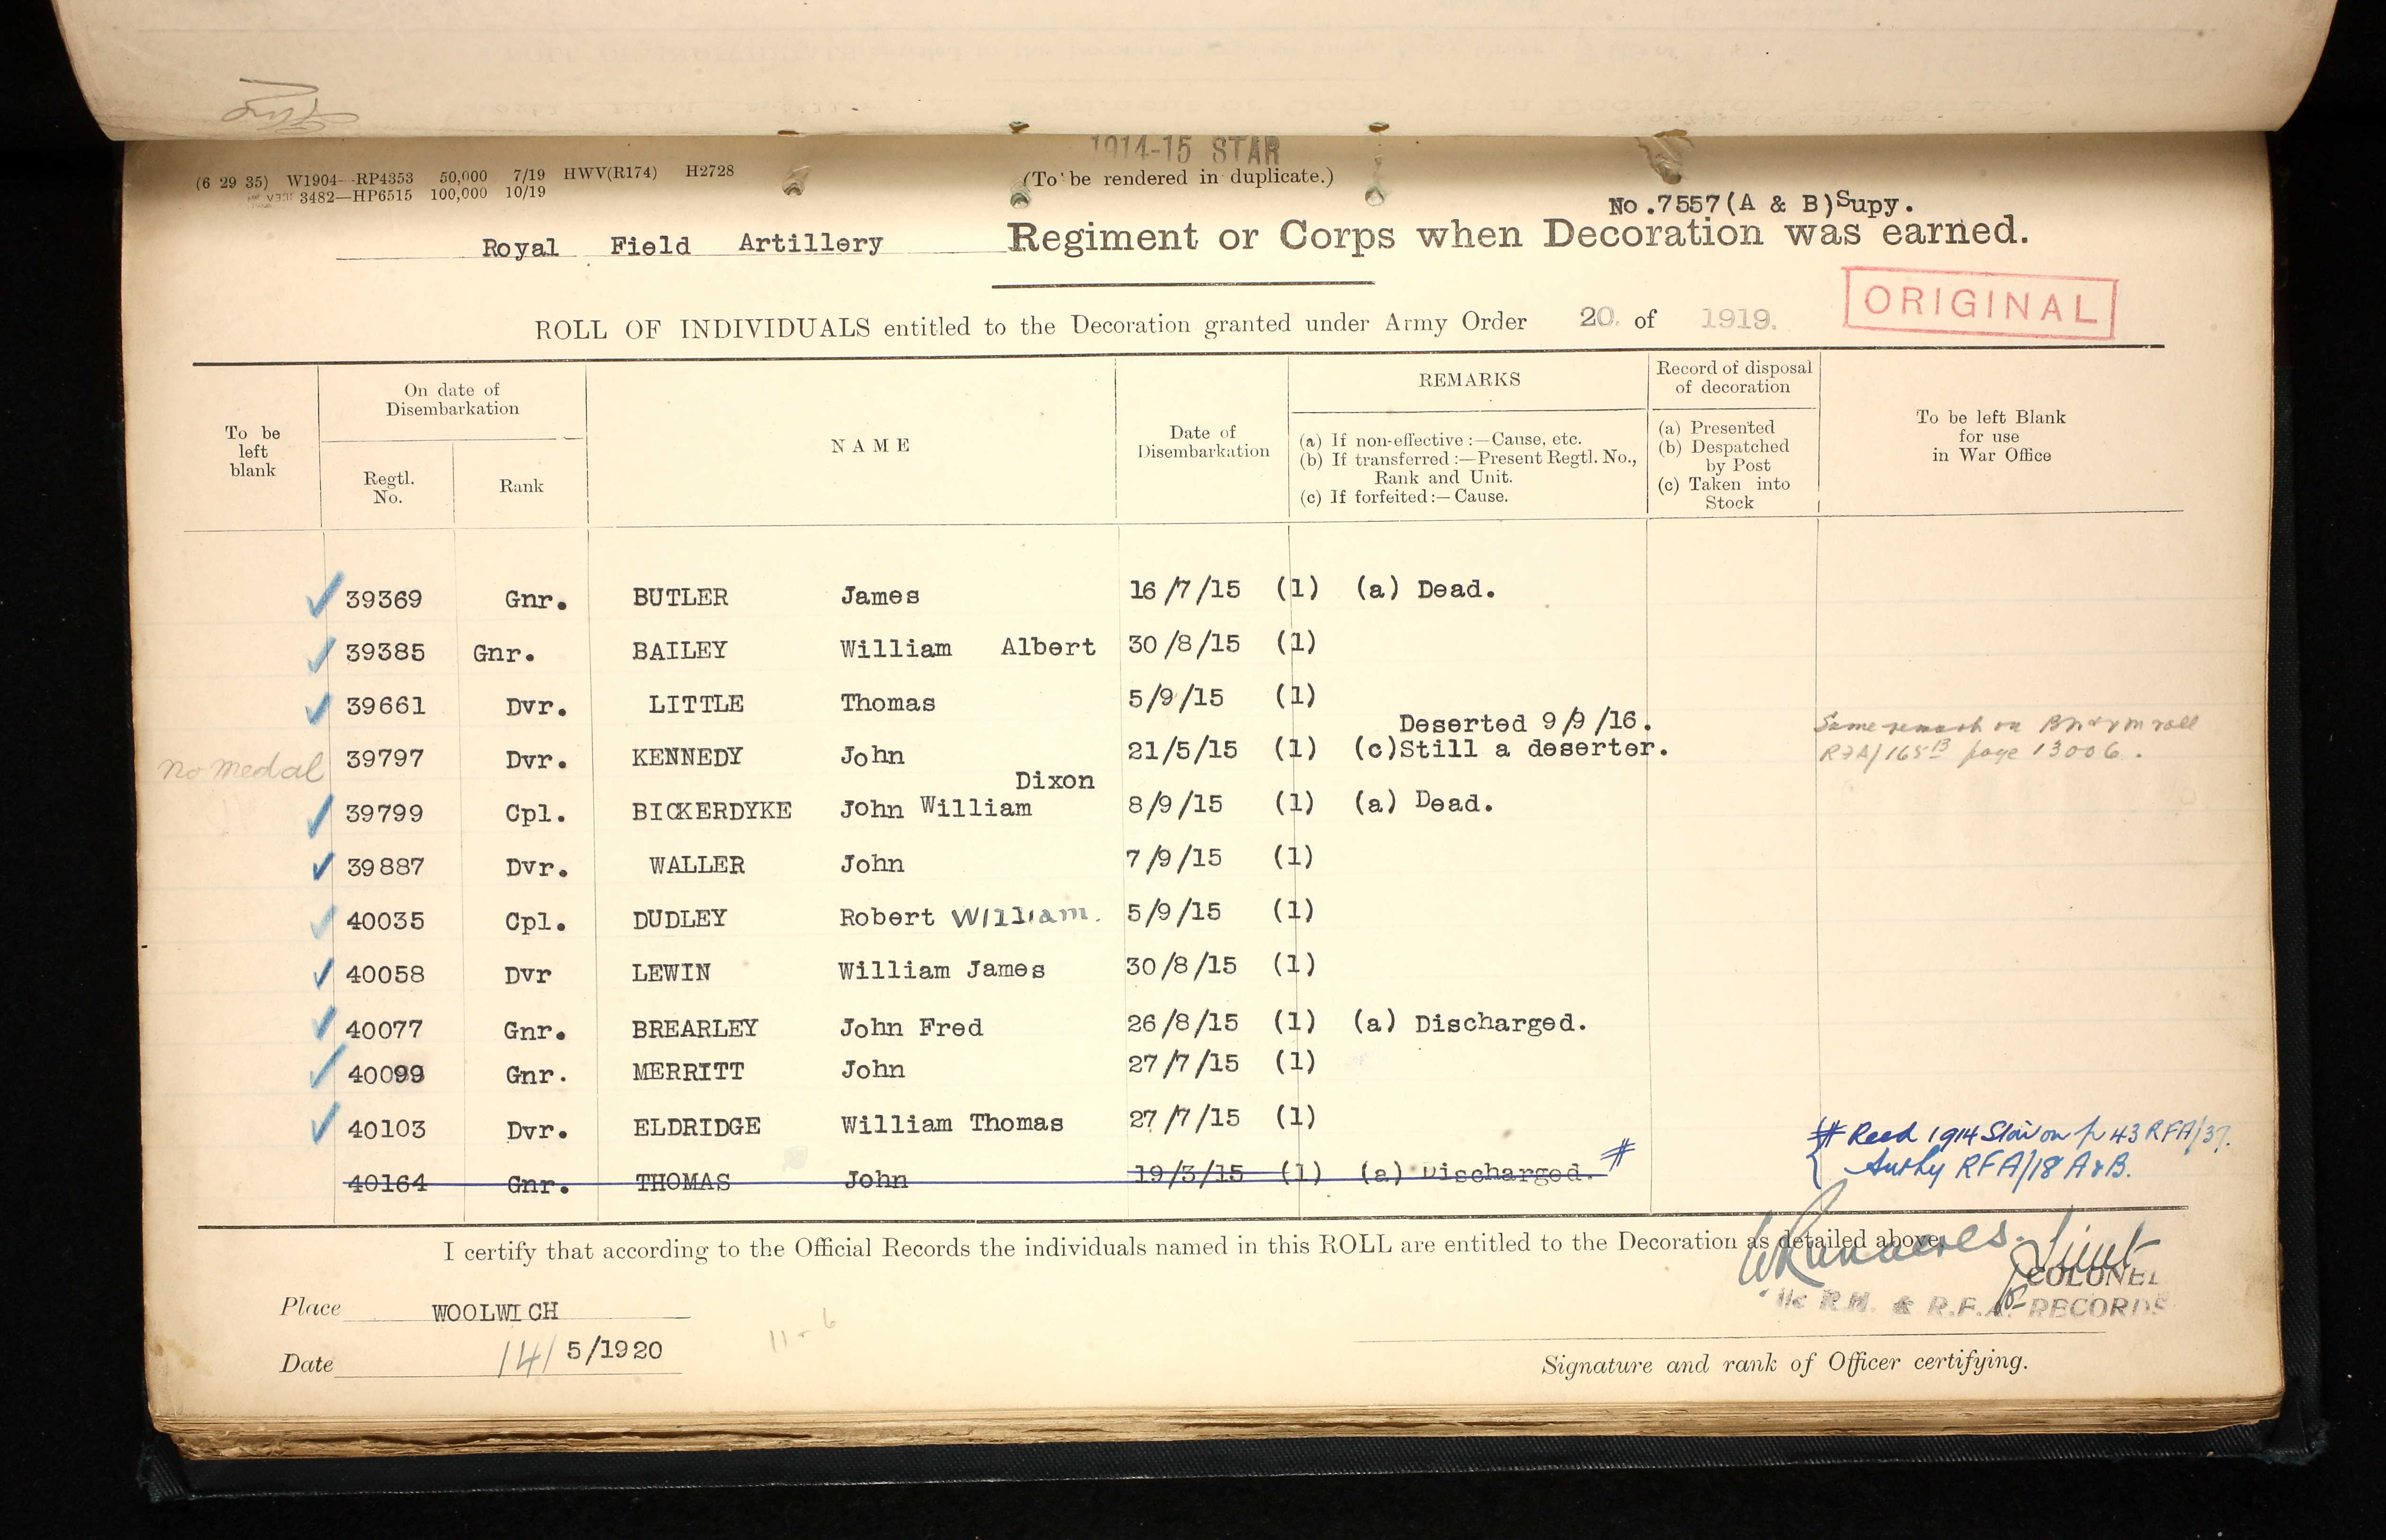 1914-15 STAR
(To be rendered in duplicate.)
(6 29 35) W1904—RP4353 50,000 7/19 HWV(R174) H2728
3482—HP6515 100,000 10/19
No.7557(A & B)Supy.
Royal Field Artillery Regiment or Corps when Decoration was earned.
ORIGINAL
ROLL OF INDIVIDUALS entitled to the Decoration granted under Army Order 20. of 1919.
To be left blank
On date of Disembarkation
Regtl. No.
Rank
NAME
Date of Disembarkation
REMARKS
(a) If non-effective :—Cause, etc.
(b) If transferred :—Present Regtl. No., Rank and Unit.
(c) If forfeited :—Cause.
Record of disposal of decoration
(a) Presented
(b) Despatched by Post
(c) Taken into Stock
To be left Blank for use in War Office
39369 Gnr. BUTLER James 16/7/15 (1) (a) Dead.
39385 Gnr. BAILEY William Albert 30/8/15 (1)
39661 Dvr. LITTLE Thomas 5/9/15 (1)
Deserted 9/9/16.
no medal 39797 Dvr. KENNEDY John 21/5/15 (1) (c)Still a deserter.
Same remark on roll
RFA/165B page 13006.
Dixon
39799 Cpl. BICKERDYKE John William 8/9/15 (1) (a) Dead.
39887 Dvr. WALLER John 7/9/15 (1)
40035 Cpl. DUDLEY Robert William. 5/9/15 (1)
40058 Dvr LEWIN William James 30/8/15 (1)
40077 Gnr. BREARLEY John Fred 26/8/15 (1) (a) Discharged.
40099 Gnr. MERRITT John 27/7/15 (1)
40103 Dvr. ELDRIDGE William Thomas 27/7/15 (1)
40164 Gnr. THOMAS John 19/3/15 (1) (a) Discharged. #
# Recd 1914 Star on p 43 RFA/37.
Authy RFA/18 A & B.
I certify that according to the Official Records the individuals named in this ROLL are entitled to the Decoration as detailed above.
Lieut
COLONEL
I/c R.H. & R.F.A. RECORDS
Place WOOLWICH
11-6
Date 14/5/1920
Signature and rank of Officer certifying.